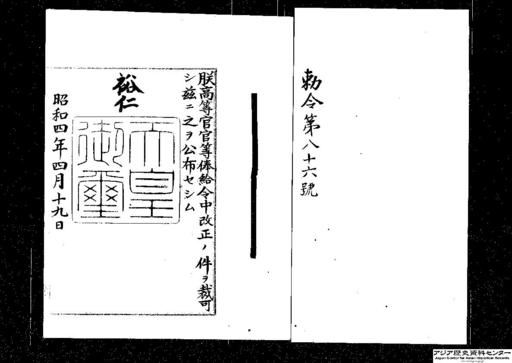 勅令第八十六號
朕高等官官等俸給令中改正ノ件ヲ裁可
シ茲ニ之ヲ公布セシム
裕仁
天皇
御璽
昭和四年四月十九日
アジア歴史資料センター
Japan Center for Asian Historical Records